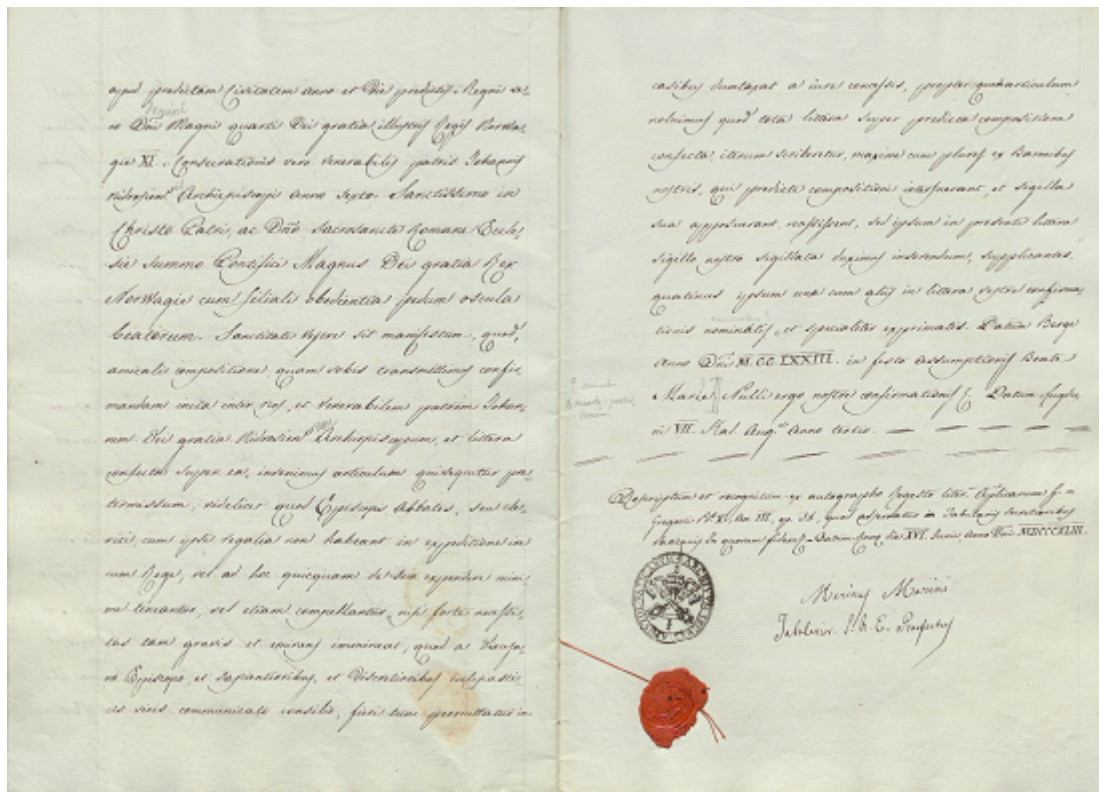 apud predictam Civitatem anno et Die predictis. Regni ve-
ro Dni Magni quarti Dei gratia illustris Regis Norwa-
gie XI. Consecrationis vero venerabilis patris Johannis
Nidrosien Archiepiscopi anno sexto. Sanctissimo in
Christo Patri, ac Dno Sacrosancte Romane Eccle-
sie Summo Pontifici Magnus Dei gratia Rex
Norwagie cum filiali obedientia pedum oscula
beatorum. Sanctitati vestre sit manifestum, quod,
amicabili compositione, quam vobis transmittimus confir
mandam inita inter nos, et venerabilem patrem Johan-
nem Dei gratia Nidrosien Archiepiscopum, et littera
confecta super ea, invenimus articulum qui sequitur pre-
termissum, videlicet quod Episcopi Abbates, seu cle-
rici, cum ipsi regalia non habeant in expeditione in
cum Rege, vel ad hoc quicquam de suo expendere mini
me teneantur, vel etiam compellantur, nisi forte necessi-
tas tam gravis et eminens immineat, quod a Diocesa-
no Episcopo, et sapientioribus, et Discretioribus ecclesiasti-
cis viris communicato consilio, fieri tunc permittatur in
casibus dumtaxat a iure concessis, propter quem articulum
noluimus quod tota littera super predicta compositione
confecta, iterum scriberetur, maxime cum plures ex Baronibus
nostris, qui predicte compositioni interfuerant, et sigilla
sua apposuerant, recessissent, sed ipsum in presenti littera
sigillo nostro sigillata duximus inserendum, supplicantes,
quatinus ipsum una cum aliis in littera vestre confirma
tionis nominatis, et specialiter exprimatis. Datum Berge
anno Dni M. CC LXXIII. in festo Assumptionis Beate
Marie. Nulli ergo nostre confirmationis &. Datum
VII. Kal. Aug. Anno tertio.
Descriptum et recognitum ex autographo Regesto liter. Aplicarum
Gregorii PP. X, An. III, ep. 36, quod adservatur in Tabulariis Secretioribus
Vaticanis In quorum fidem &. Datum die XVI. Junii, Anno Dni MDCCCXLIII.
Marinus Marini
Tabularior. S. R. E. Praefectus